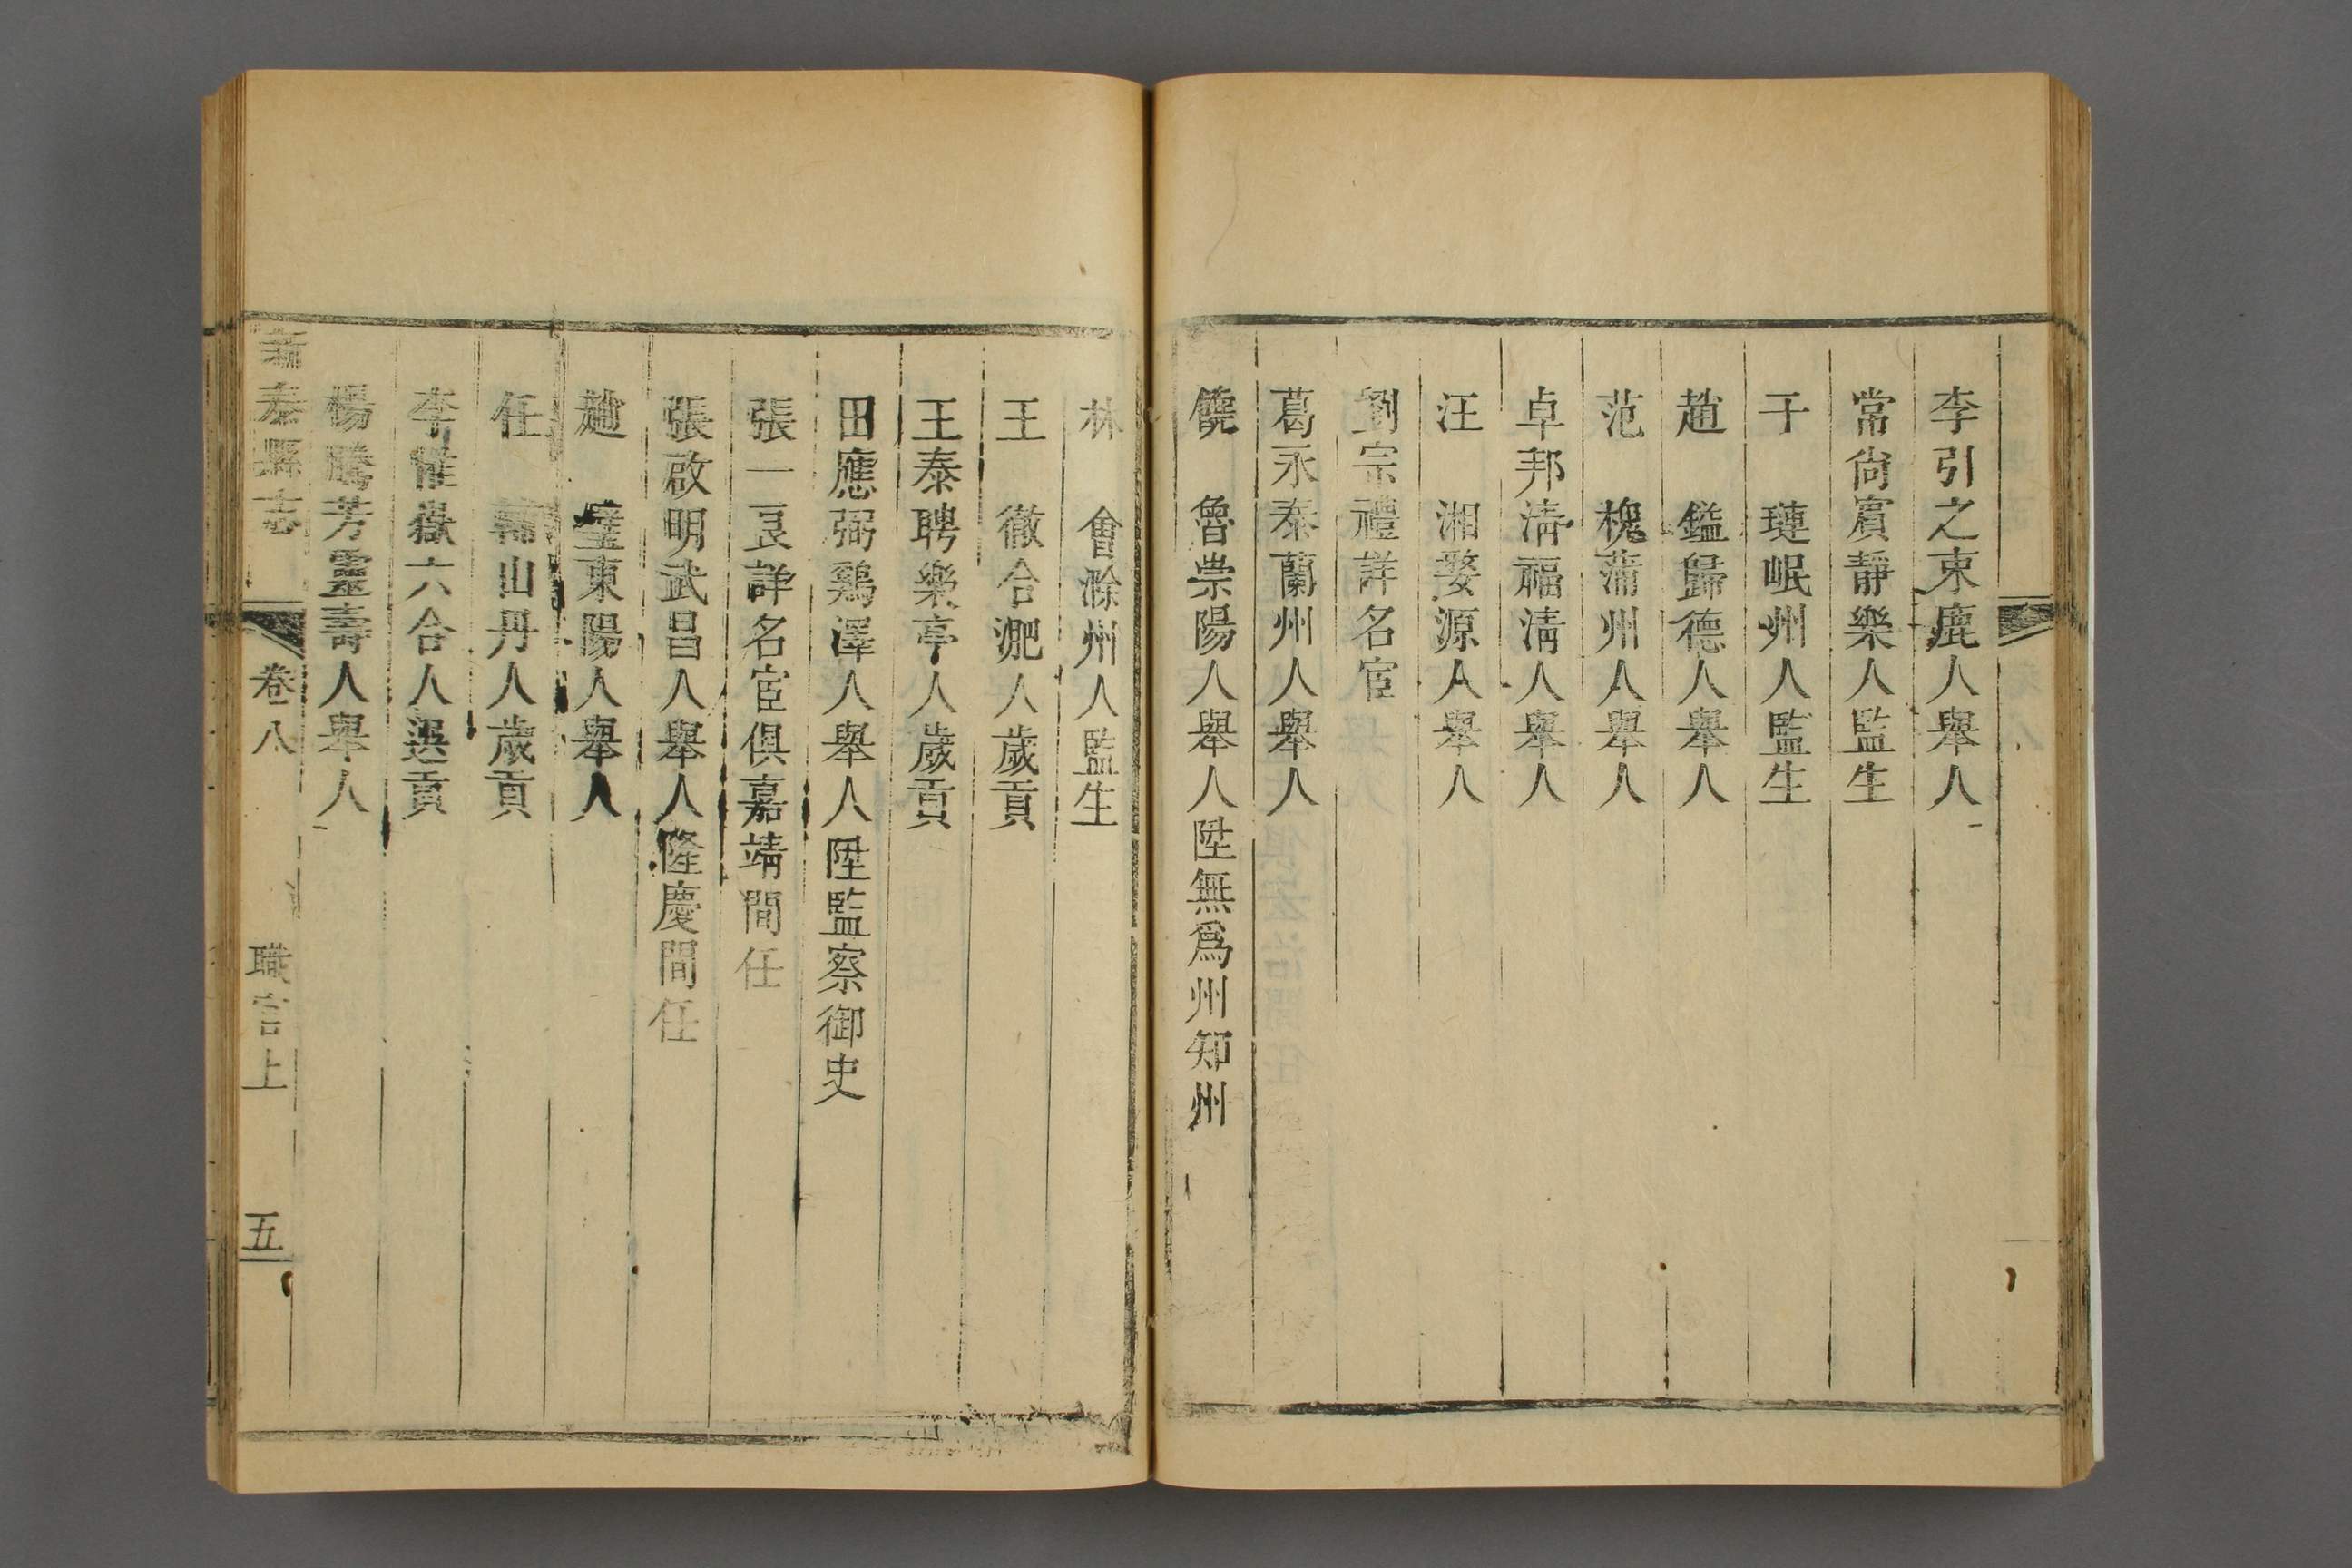 李引之束鹿人舉人
常尙賓靜樂人監生
于 璉岷州人監生
趙 鎰歸德人舉人
范 槐蒲州人舉人
卓邦淸福淸人舉人
汪 湘婺源人舉人
劉宗禮詳名宦
葛永泰蘭州人舉人
饒 魯崇陽人舉人陞無爲州知州
林 會滁州人監生
王 徹合淝人歲貢
王泰聘樂亭人歲貢
田應弼鷄澤人舉人陞監察御史
張一艮詳名宦俱嘉靖間任
張啟明武昌人舉人隆慶間任
趙 璧東陽人舉人
任 山丹人歲貢
李惟嶽六合人選貢
楊騰芳靈壽人舉人
新泰縣志 卷八 職官上 五